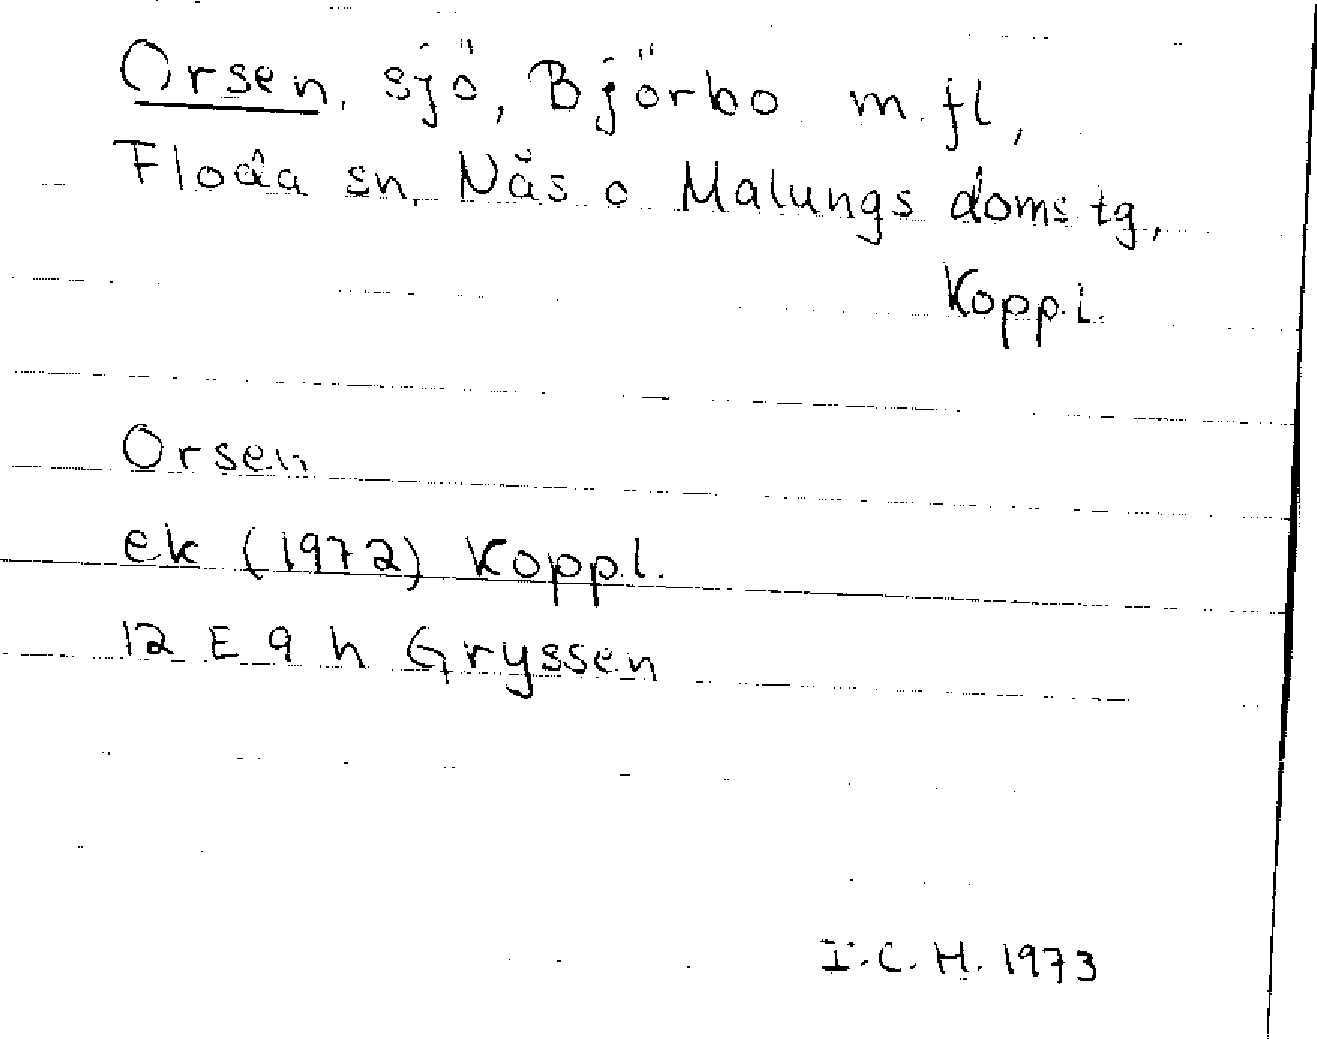 Orsen, sjö, Björbo m. fl,
Floda sn, Näs o Malungs domstg,
Koppl.
Orsen
ek (1972) Koppl.
12 E 9 h Gryssen
I.C.H. 1973